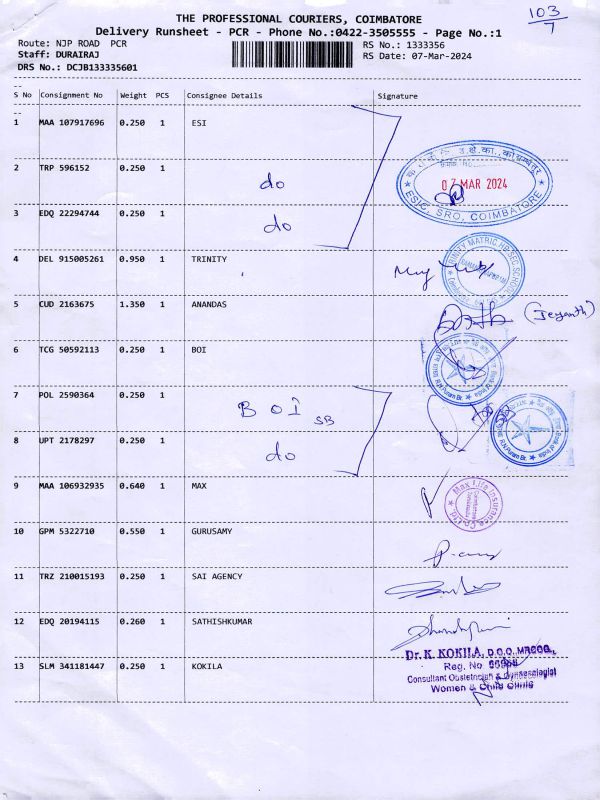 THE PROFESSIONAL COURIERS, COIMBATORE
103/7
Delivery Runsheet - PCR - Phone No.:0422-3505555 - Page No.:1
Route: NJP ROAD PCR
RS No.: 1333356
Staff: DURAIRAJ
RS Date: 07-Mar-2024
DRS No.: DCJB133335601
S No Consignment No Weight PCS Consignee Details Signature
1 MAA 107917696 0.250 1 ESI
2 TRP 596152 0.250 1 do
07 MAR 2024
ESIC, SRO, COIMBATORE
3 EDQ 22294744 0.250 1 do
4 DEL 915005261 0.950 1 TRINITY
TRINITY MATRIC.HR.SEC.SCHOOL
5 CUD 2163675 1.350 1 ANANDAS
(Jeyanth)
6 TCG 50592113 0.250 1 BOI
Bank of India
R.N.Puram Br.
7 POL 2590364 0.250 1 BOI SB
Bank of India
R.N.Puram Br.
8 UPT 2178297 0.250 1 do
9 MAA 106932935 0.640 1 MAX
Max Life Insurance Co. Ltd.
10 GPM 5322710 0.550 1 GURUSAMY
11 TRZ 210015193 0.250 1 SAI AGENCY
12 EDQ 20194115 0.260 1 SATHISHKUMAR
13 SLM 341181447 0.250 1 KOKILA
Dr. K. KOKILA, D.G.O., MRCOG.,
Reg. No
Consultant Obstetrician & Gynaecologist
Women & Child Clinic